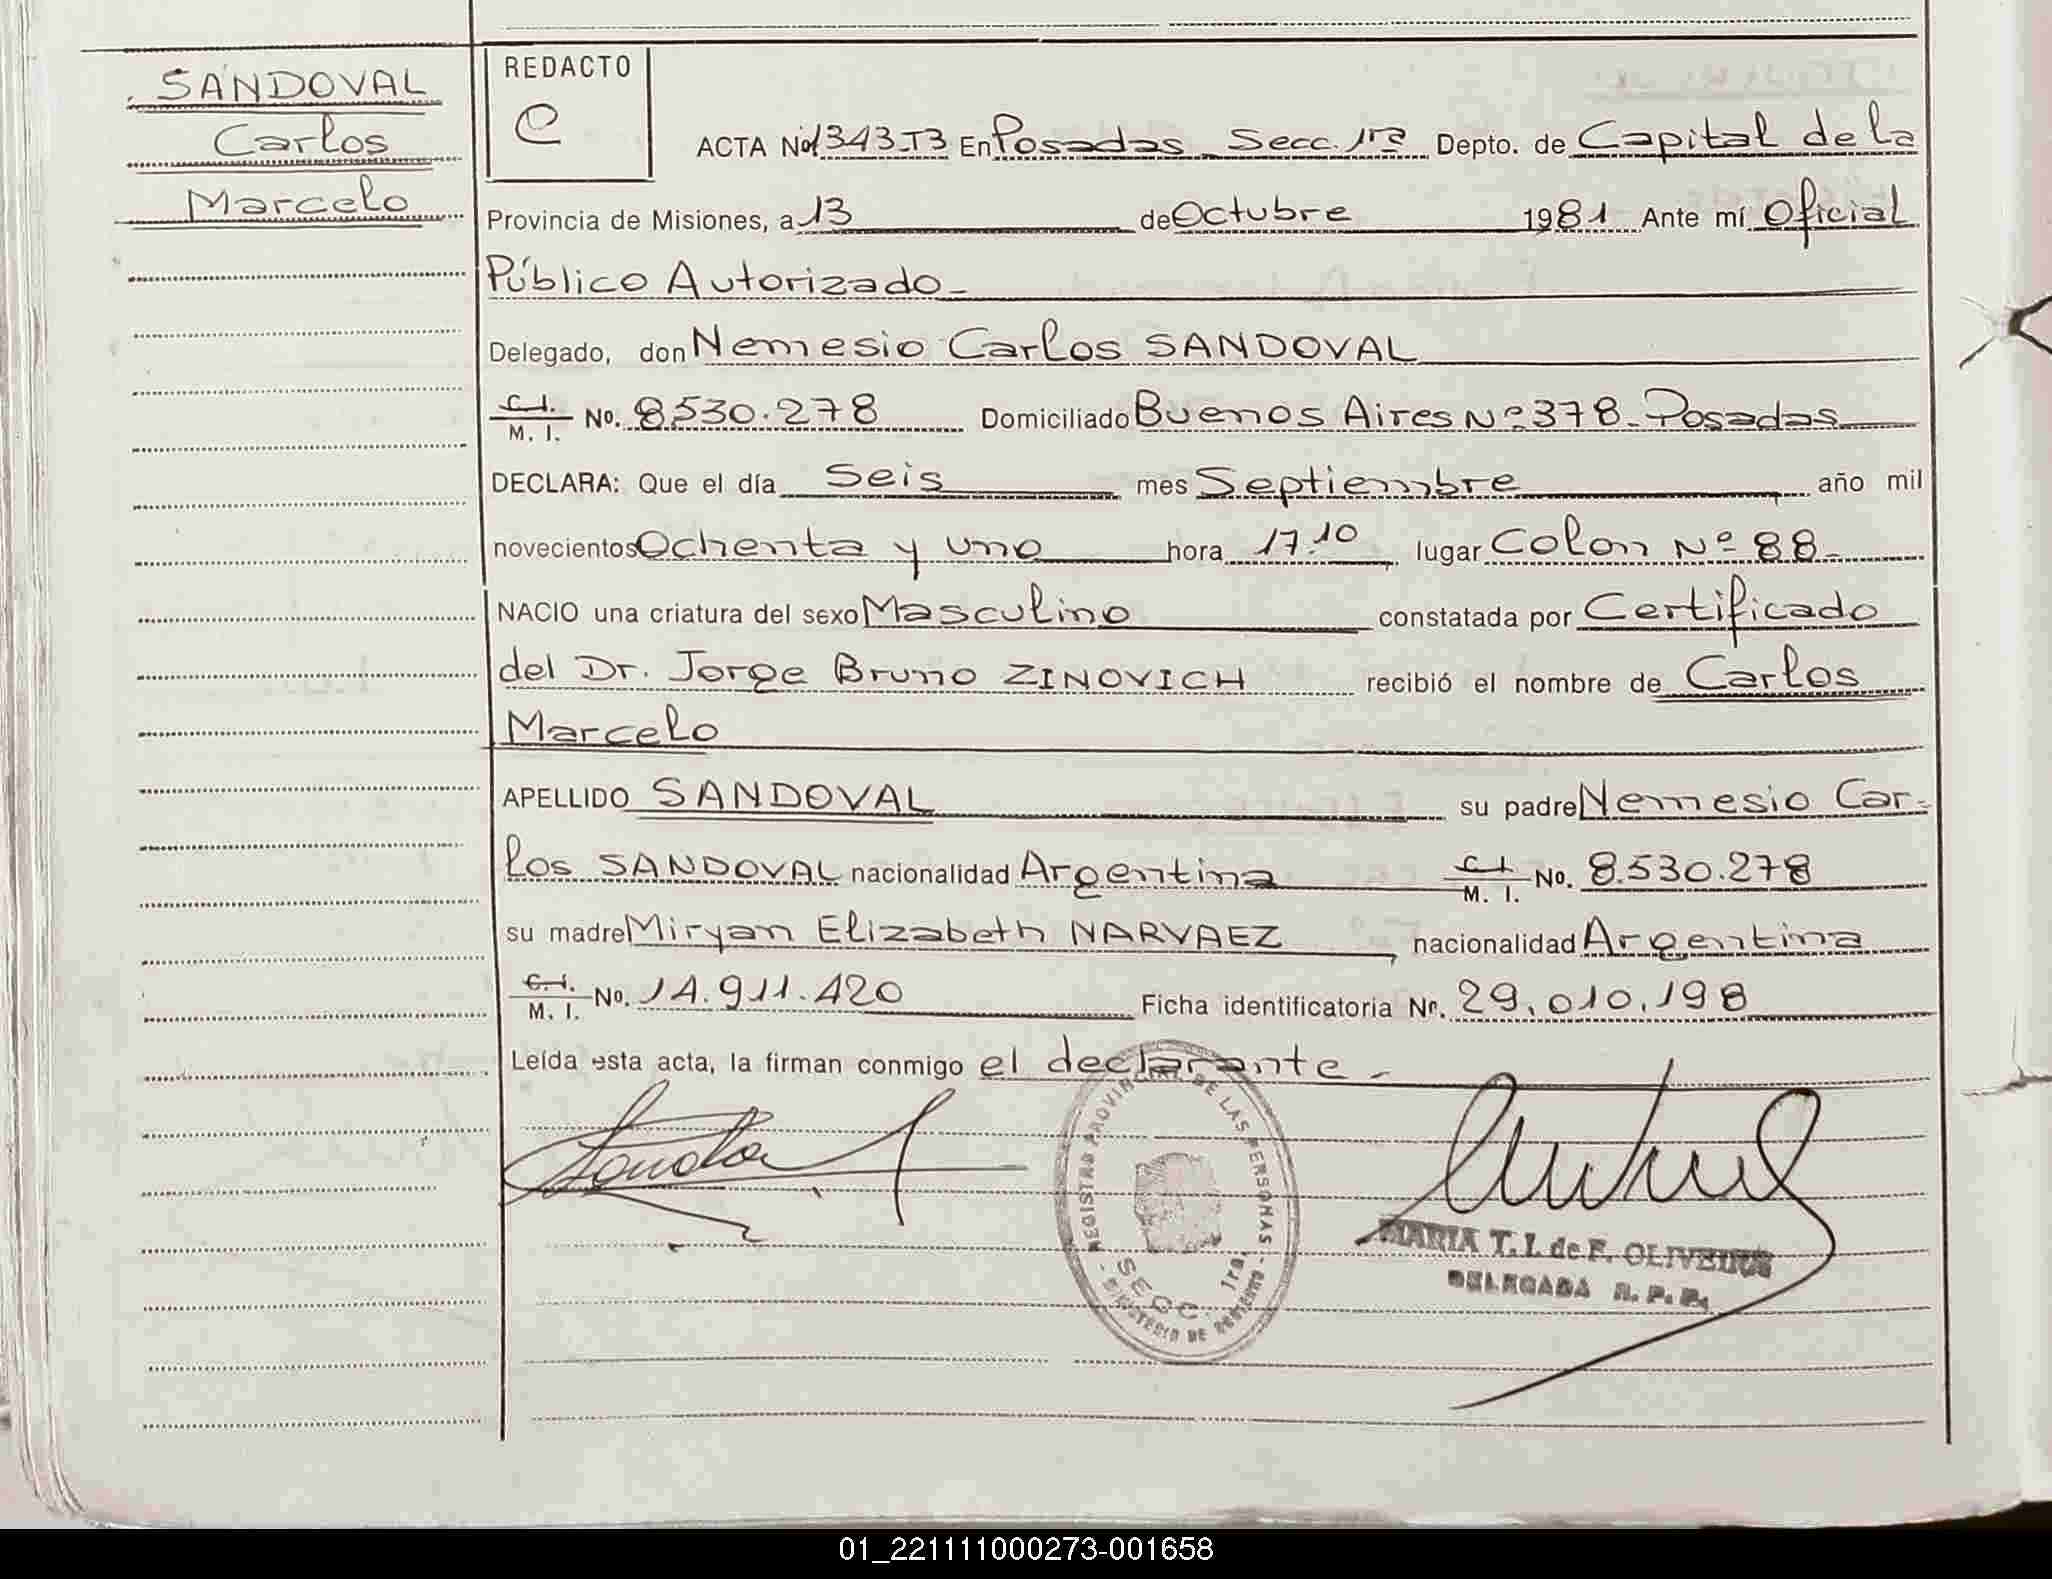 SANDOVAL
Carlos
Marcelo
REDACTO
C
ACTA Nº 1343-T3 En Posadas Secc. 1ra Depto. de Capital de la
Provincia de Misiones, a 13 de Octubre 1981 Ante mí Oficial
Público Autorizado-
Delegado, don Nemesio Carlos SANDOVAL
C.I.
M. I. No. 8.530.278 Domiciliado Buenos Aires Nº 378- Posadas
DECLARA: Que el día Seis mes Septiembre año mil
novecientos Ochenta y uno hora 17.10 lugar Colon Nº 88-
NACIO una criatura del sexo Masculino constatada por Certificado
del Dr. Jorge Bruno ZINOVICH recibió el nombre de Carlos
Marcelo
APELLIDO SANDOVAL su padre Nemesio Car-
los SANDOVAL nacionalidad Argentina C.I.
M. I. No. 8.530.278
su madre Miryan Elizabeth NARVAEZ nacionalidad Argentina
C.I.
M. I. No. 14.911.420 Ficha identificatoria Nr. 29.010.198
Leída esta acta, la firman conmigo el declarante-
REGISTRO PROVINCIAL DE LAS PERSONAS
SECC. 1ra.
- MINISTERIO DE GOBIERNO -
MARIA T. I. de F. OLIVEIRA
DELEGADA R. P. P.
01_221111000273-001658